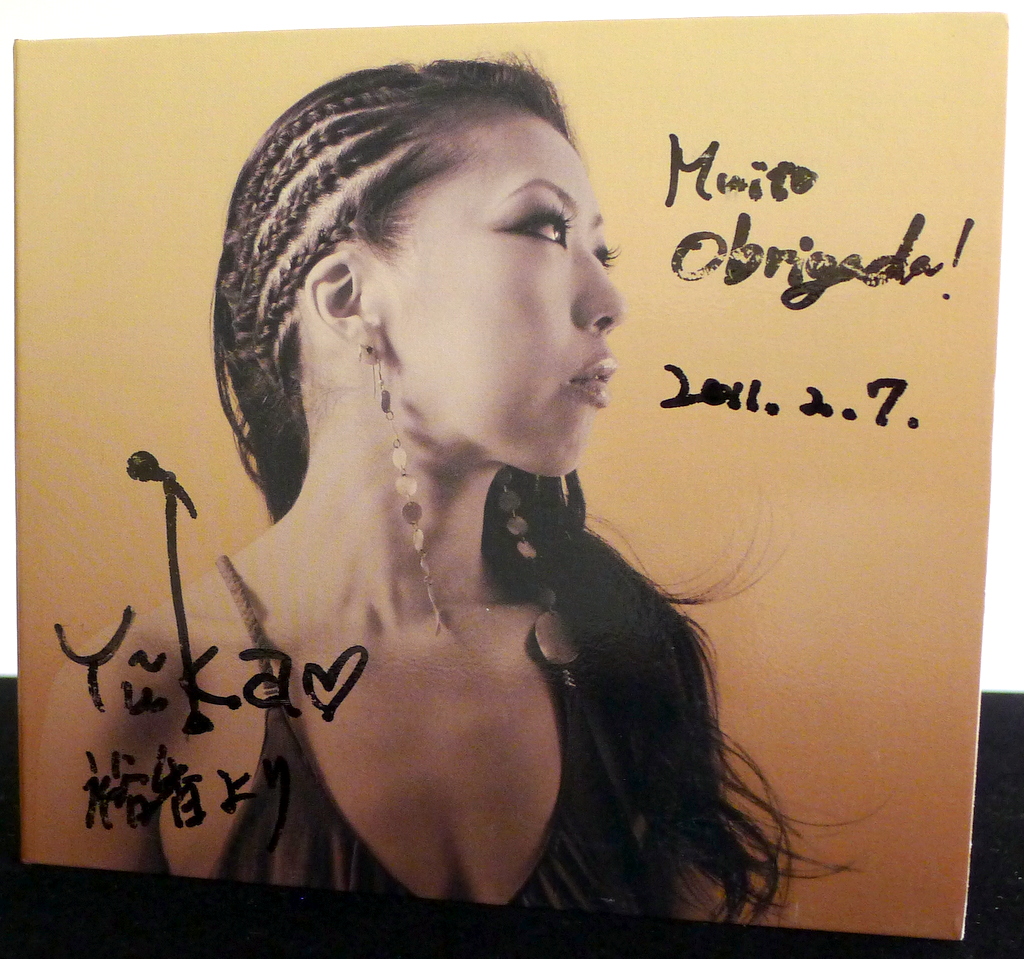 Muito
Obrigada!
2011.2.7.
Yũka♡
裕香より